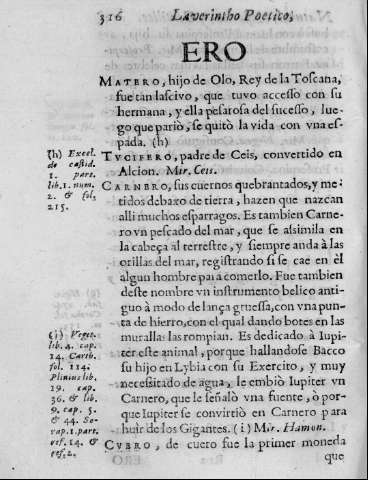 316 Laverintho Poetico,
ERO
MATERO, hijo de Olo, Rey de la Toscana,
fue tan lascivo, que tuvo accesso con su
hermana, y ella pesarosa del sucesso, lue-
go que pariò, se quitò la vida con vna es-
pada. (h)
TVCIFERO, padre de Ceis, convertido en
Alcion. Mir. Ceis.
CARNERO, sus cuernos quebrantados, y me-
tidos debaxo de tierra, hazen que nazcan
alli muchos esparragos. Es tambien Carne-
ro vn pescado del mar, que se assimila en
la cabeça al terrestre, y siempre anda à las
orillas del mar, registrando si se cae en èl
algun hombre para comerlo. Fue tambien
deste nombre vn instrumento belico anti-
guo à modo de lança gruessa, con vna pun-
ta de hierro, con el qual dando botes en las
murallas las rompian. Es dedicado à Iupi-
ter este animal, porque hallandose Bacco
su hijo en Lybia con su Exercito, y muy
necessitado de agua, le embiò Iupiter vn
Carnero, que le señalò vna fuente, ò por-
que Iupiter se convirtiò en Carnero para
huìr de los Gigantes. (i) Mir. Hamon.
CVERO, de cuero fue la primer moneda
que
(h) Excel.
de castid.
1. part.
lib. 1. num.
2. & fol.
215.
(i) Veget.
lib. 4. cap.
14. Carth.
fol. 114.
Plinius lib.
19. cap.
36. & lib.
9. cap. 5.
& 44. So-
rap. 1. part.
ref. 14. &
ref. 2.